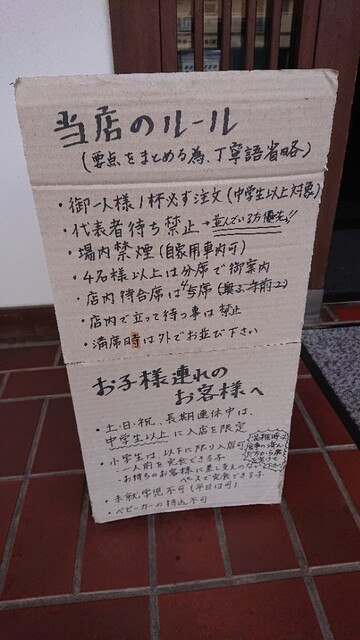 当店のルール
(要点をまとめる為、丁寧語省略)
・御一人様1杯必ず注文(中学生以上対象)
・代表者待ち禁止→並んでいる方優先!!
・場内禁煙(自家用車内可)
・4名様以上は分席で御案内
・店内待合席は4席
・店内で立って待つ事は禁止
・満席時は外でお並び下さい
お子様連れの
お客様へ
・土・日・祝、長期連休中は、
中学生以上に入店を限定
・小学生は、以下に限り入店可
一人前を完食できる子
・お待ちのお客様に差し支えのない
ペースで完食できる子
・未就学児不可(平日は可)
・ベビーカーの持込不可